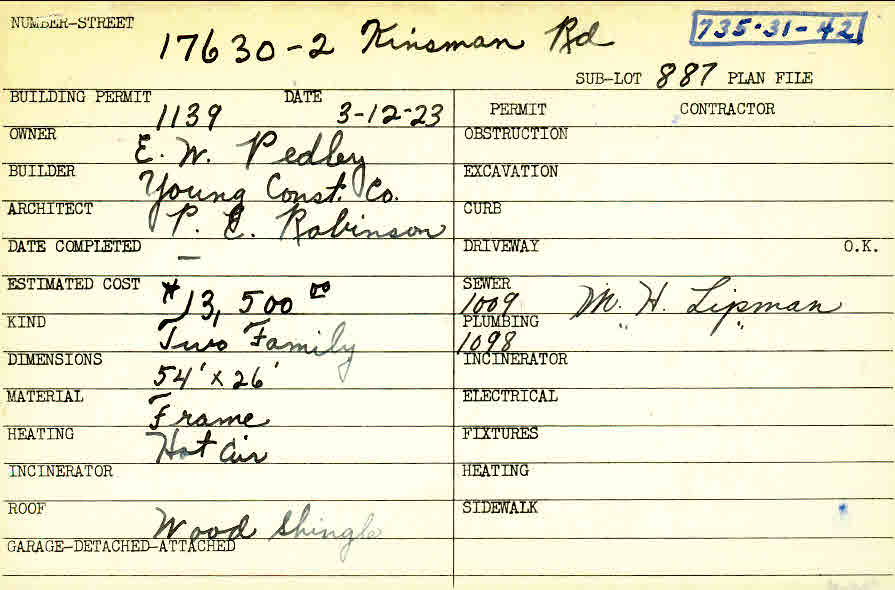 NUMBER-STREET
17630-2 Kinsman Rd
735-31-42
SUB-LOT 887 PLAN FILE
BUILDING PERMIT DATE
1139 3-12-23
OWNER
E. W. Pedley
BUILDER
Young Const. Co.
ARCHITECT
P. E. Robinson
DATE COMPLETED
—
ESTIMATED COST
$13,500 00
KIND
Two Family
DIMENSIONS
54' x 26'
MATERIAL
Frame
HEATING
Hot Air
INCINERATOR
ROOF
Wood Shingle
GARAGE-DETACHED-ATTACHED
PERMIT CONTRACTOR
OBSTRUCTION
EXCAVATION
CURB
DRIVEWAY O.K.
SEWER
1009 M. H. Lipman
PLUMBING " "
1098
INCINERATOR
ELECTRICAL
FIXTURES
HEATING
SIDEWALK